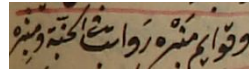 وقوايم منبره رواتب في الجنة ومنبره